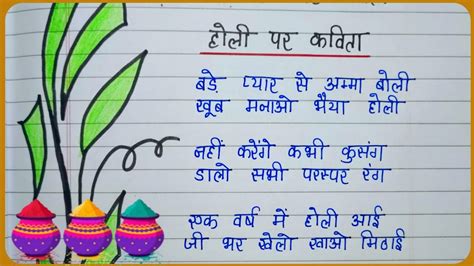 होली पर कविता
बड़े प्यार से अम्मा बोली
खूब मनाओ भैया होली
नहीं करेंगे कभी कुसंग
डालो सभी परस्पर रंग
एक वर्ष में होली आई
जी भर खेलो खाओ मिठाई